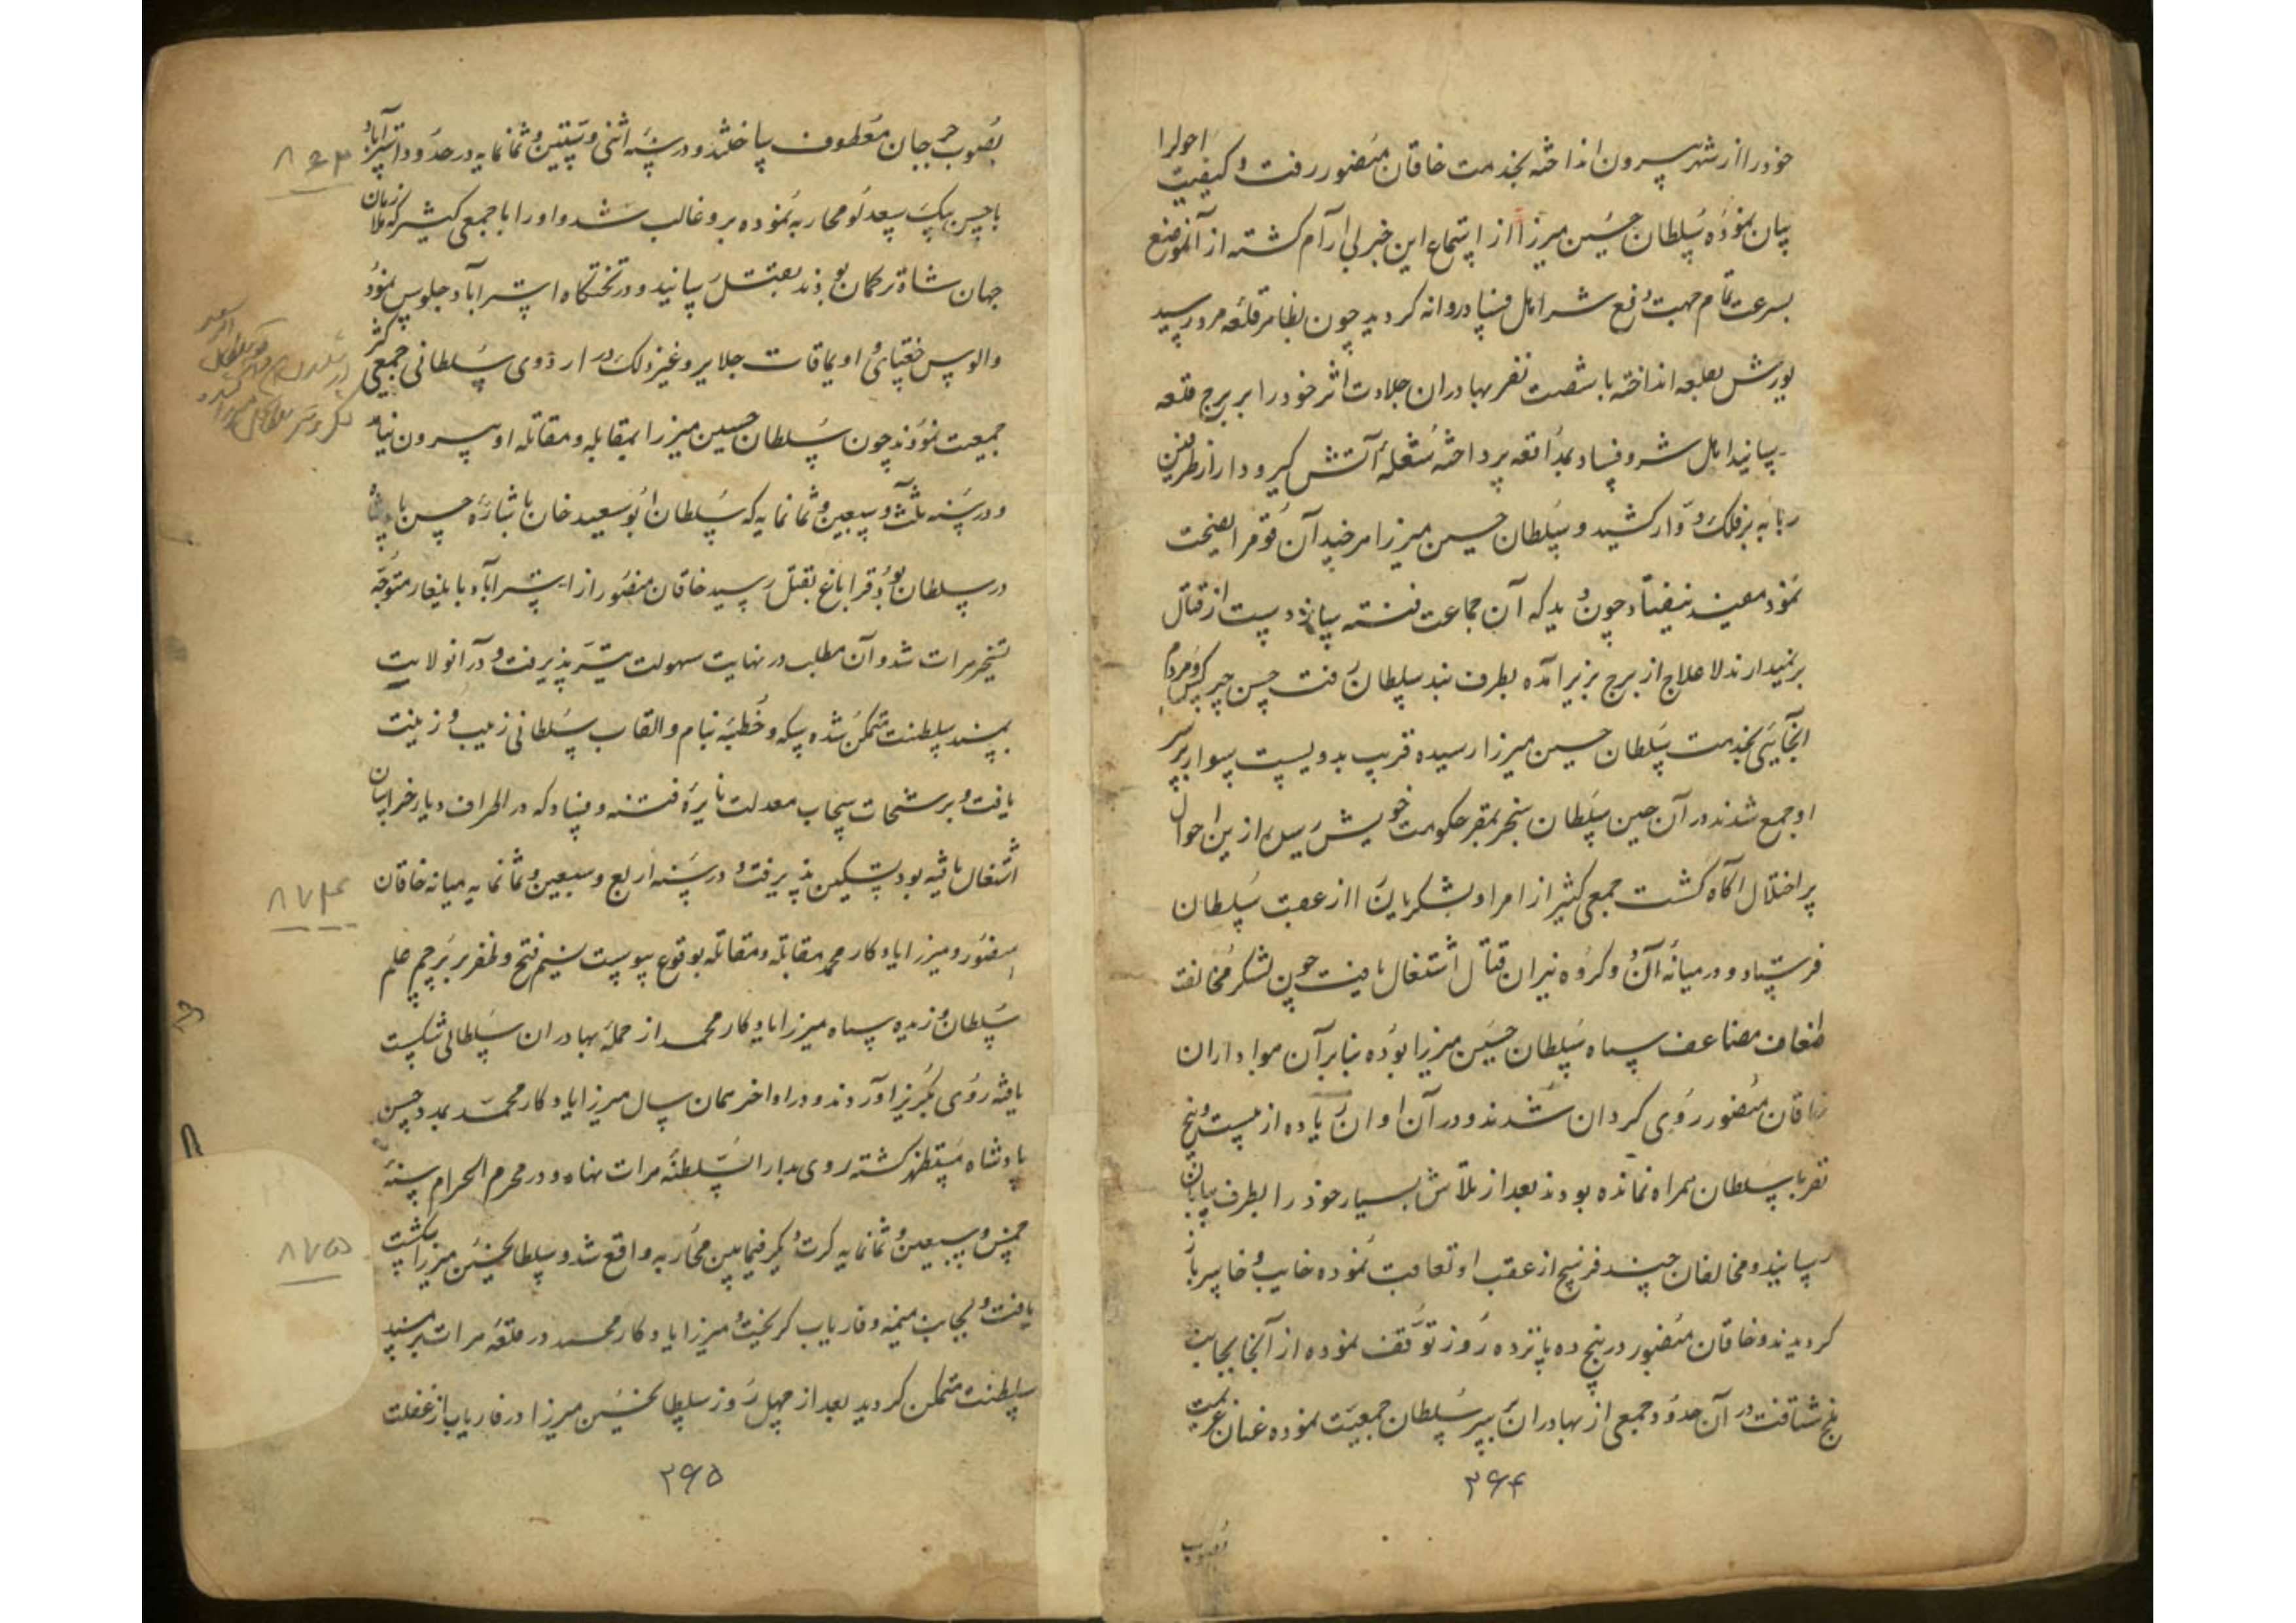 خود را از شهر بیرون انداخته بخدمت خاقان منصور رفت و کیفیت احوالرا
بیان نموده سلطان حسین میرزا از استماع این خبر بی آرام کشته از آنموضع
بسرعت تمام جهت رفع شر اهل فساد روانه کردید چون بظاهر قلعه مرو رسید
یورش بقلعه انداخته با شصت نفر بهادران جلادت اثر خود را بر برج قلعه
رسانید اهل شر و فساد بمدافعه پرداخته شعله آتش کیرودار از طرفین
زبانه بر فلک دوار کشید و سلطان حسین میرزا هر چند آن قوم را نصیحت
نمود مفید نیفتاد چون دید که آن جماعت فتنه دست از قتال
بر نمیدارند لاعلاج از برج بزیر آمده بطرف بند سلطان رفت حسن چرکس و مردم
آنجائی بخدمت سلطان حسین میرزا رسیده قریب بدویست سوار بر سر
او جمع شدند در آن حین سلطان سنجر بمقر حکومت خویش رسیده از این احوال
پر اختلال آکاه کشت جمعی کثیر از امرا و لشکریان را از عقب سلطان
فرستاد و در میانه آن دو کروه نیران قتال اشتغال یافت چون لشکر مخالفت
اضعاف مضاعف سپاه سلطان حسین میرزا بوده بنابرآن هواداران
خاقان منصور روی کردان شدند و در آن اوان زیاده از بیست و پنج
نفر با سلطان همراه نمانده بودند بعد از تلاش بسیار خود را بطرف بیابان
رسانید و مخالفان چند فرسخ از عقب او تعاقب نموده خایب و خاسر باز
کردیدند و خاقان منصور در پنج ده پانزده روز توقف نموده از آنجا بجانب
شتافت در آن حدود جمعی از بهادران بر سر سلطان جمعیت نموده عنان عزیمت
۲۶۴
بصوب
بصوب جرجان معطوف ساختند و در سنه اثنی و ستین و ثمانمایه در حدود استرآباد
با حسین بیک سعدلو محاربه نموده برو غالب شد و او را با جمعی کثیر که ملازمان
جهان شاه ترکمان بودند بقتل رسانید و در تختکاه استرآباد جلوس نمود
والوس جغتای و اویماقات جلایر و غیر ذلک در اردوی سلطانی جمعی کثیر
جمعیت نمودند چون سلطان حسین میرزا بمقابله و مقاتله او بیرون نیامد
و در سنه ثلث و سبعین و ثمانمایه که سلطان ابوسعید خان باشاره حسن پادشاه
در سلطان بود قراباغ بقتل رسید خاقان منصور از استرآباد بایلغار متوجه
تسخیر هرات شد و آن مطلب در نهایت سهولت میسر پذیرفت و در آنولایت
بمسند سلطنت متمکن شده سکه و خطبه بنام و القاب سلطانی زیب و زینت
یافت و برشحات سحاب معدلت نایرۀ فتنه و فساد که در اطراف دیار خراسان
اشتغال یافته بود تسکین پذیرفت و در سنه اربع و سبعین و ثمانمایه میانه خاقان
منصور و میرزا یادکار محمد مقابله و مقاتله بوقوع پیوست نسیم فتح و ظفر بر پرچم علم
سلطان وزیده سپاه میرزا یادکار محمد از حملۀ بهادران سلطانی شکست
یافته روی بکریز آوردند و در اواخر همان سال میرزا یادکار محمد بمدد حسن
پادشاه مستظهر کشته روی بدار السلطنۀ هرات نهاد و در محرم الحرام سنۀ
خمس و سبعین و ثمانمایه کرت دیکر فیمابین محاربه واقع شد و سلطانحسین میرزا شکست
یافت و بجانب میمنه و فاریاب کریخت و میرزا یادکار محمد در قلعۀ هرات بر مسند
سلطنت متمکن کردید بعد از چهل روز سلطانحسین میرزا در فاریاب از غفلت
۲۶۵
۸۷۴
۸۷۵